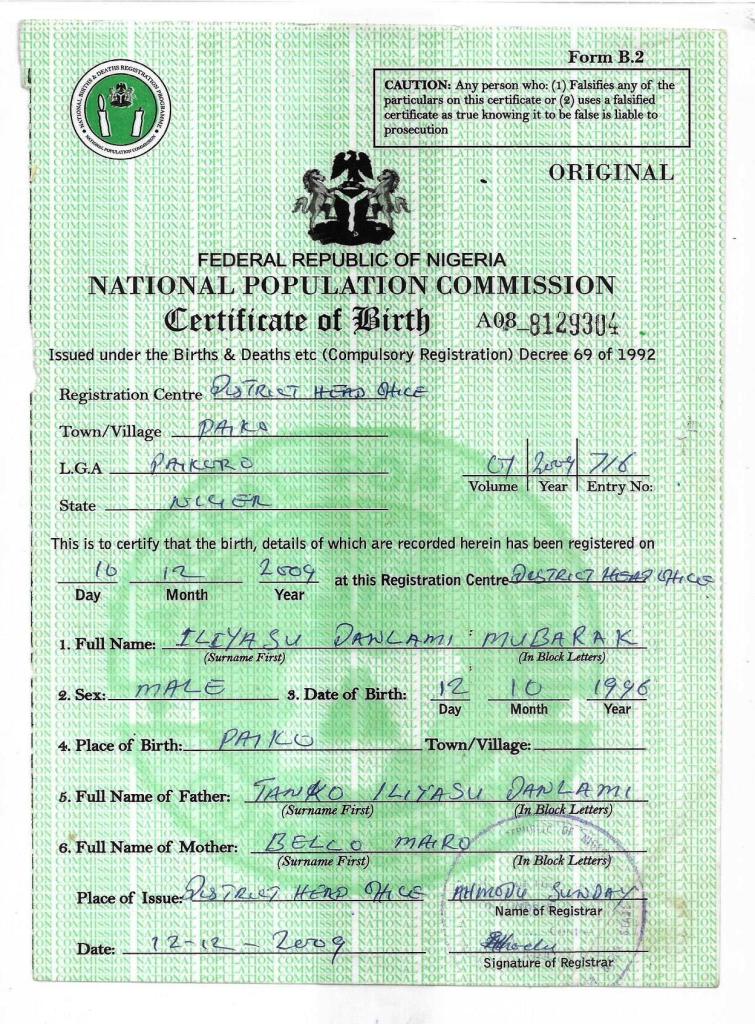 Form B.2
NATIONAL BIRTHS & DEATHS REGISTRATION PROGRAMME
NATIONAL POPULATION COMMISSION
CAUTION: Any person who: (1) Falsifies any of the
particulars on this certificate or (2) uses a falsified
certificate as true knowing it to be false is liable to
prosecution
ORIGINAL
FEDERAL REPUBLIC OF NIGERIA
NATIONAL POPULATION COMMISSION
Certificate of Birth A08-8129304
Issued under the Births & Deaths etc (Compulsory Registration) Decree 69 of 1992
Registration Centre DISTRICT HEAD OFFICE
Town/Village PAIKO
L.G.A PAIKORO
07 2009 716
Volume Year Entry No:
State NIGER
This is to certify that the birth, details of which are recorded herein has been registered on
10 12 2009 at this Registration Centre DISTRICT HEAD OFFICE
Day Month Year
1. Full Name: ILIYASU DANLAMI MUBARAK
(Surname First) (In Block Letters)
2. Sex: MALE 3. Date of Birth: 12 10 1996
Day Month Year
4. Place of Birth: PAIKO Town/Village:
5. Full Name of Father: TANKO ILIYASU DANLAMI
(Surname First) (In Block Letters)
6. Full Name of Mother: BELLO MAIRO
(Surname First) (In Block Letters)
Place of Issue: DISTRICT HEAD OFFICE AHMODU SUNDAY
Name of Registrar
Date: 12-12-2009
Signature of Registrar